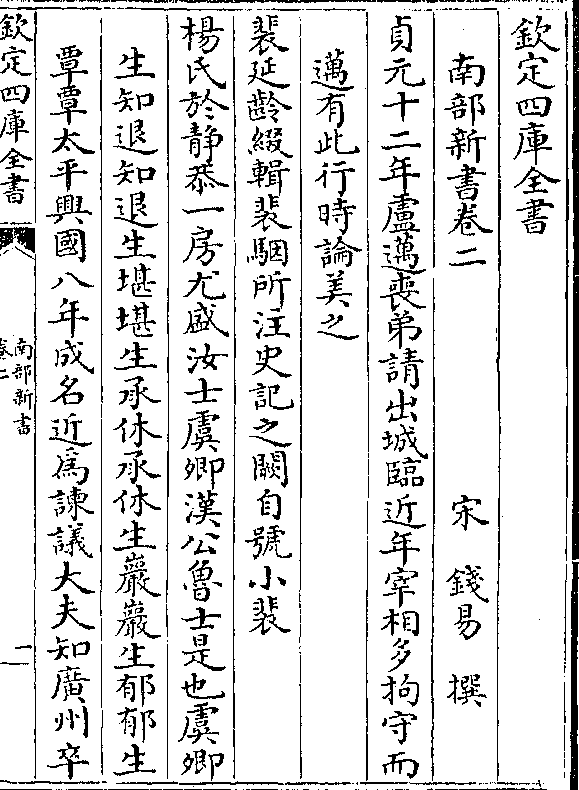 欽定四庫全書
南部新書卷二
宋 錢易 撰
貞元十二年盧邁喪弟請出城臨近年宰相多拘守而
邁有此行時論美之
裴延齡綴輯裴駰所注史記之闕自號小裴
楊氏於靜恭一房尤盛汝士虞卿漢公魯士是也虞卿
生知退知退生堪堪生承休承休生巖巖生郁郁生
覃覃太平興國八年成名近爲諫議大夫知廣州卒
欽定四庫全書
南部新書
卷二
一